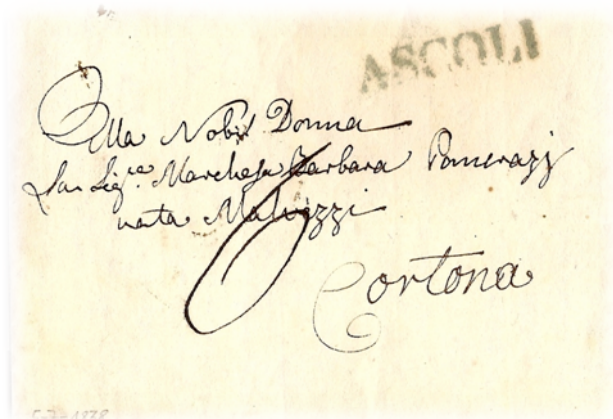 ASCOLI
Alla Nobil Donna
La Sig.ra Marchesa Barbara Pancrazj
nata Malvezzi
6
Cortona